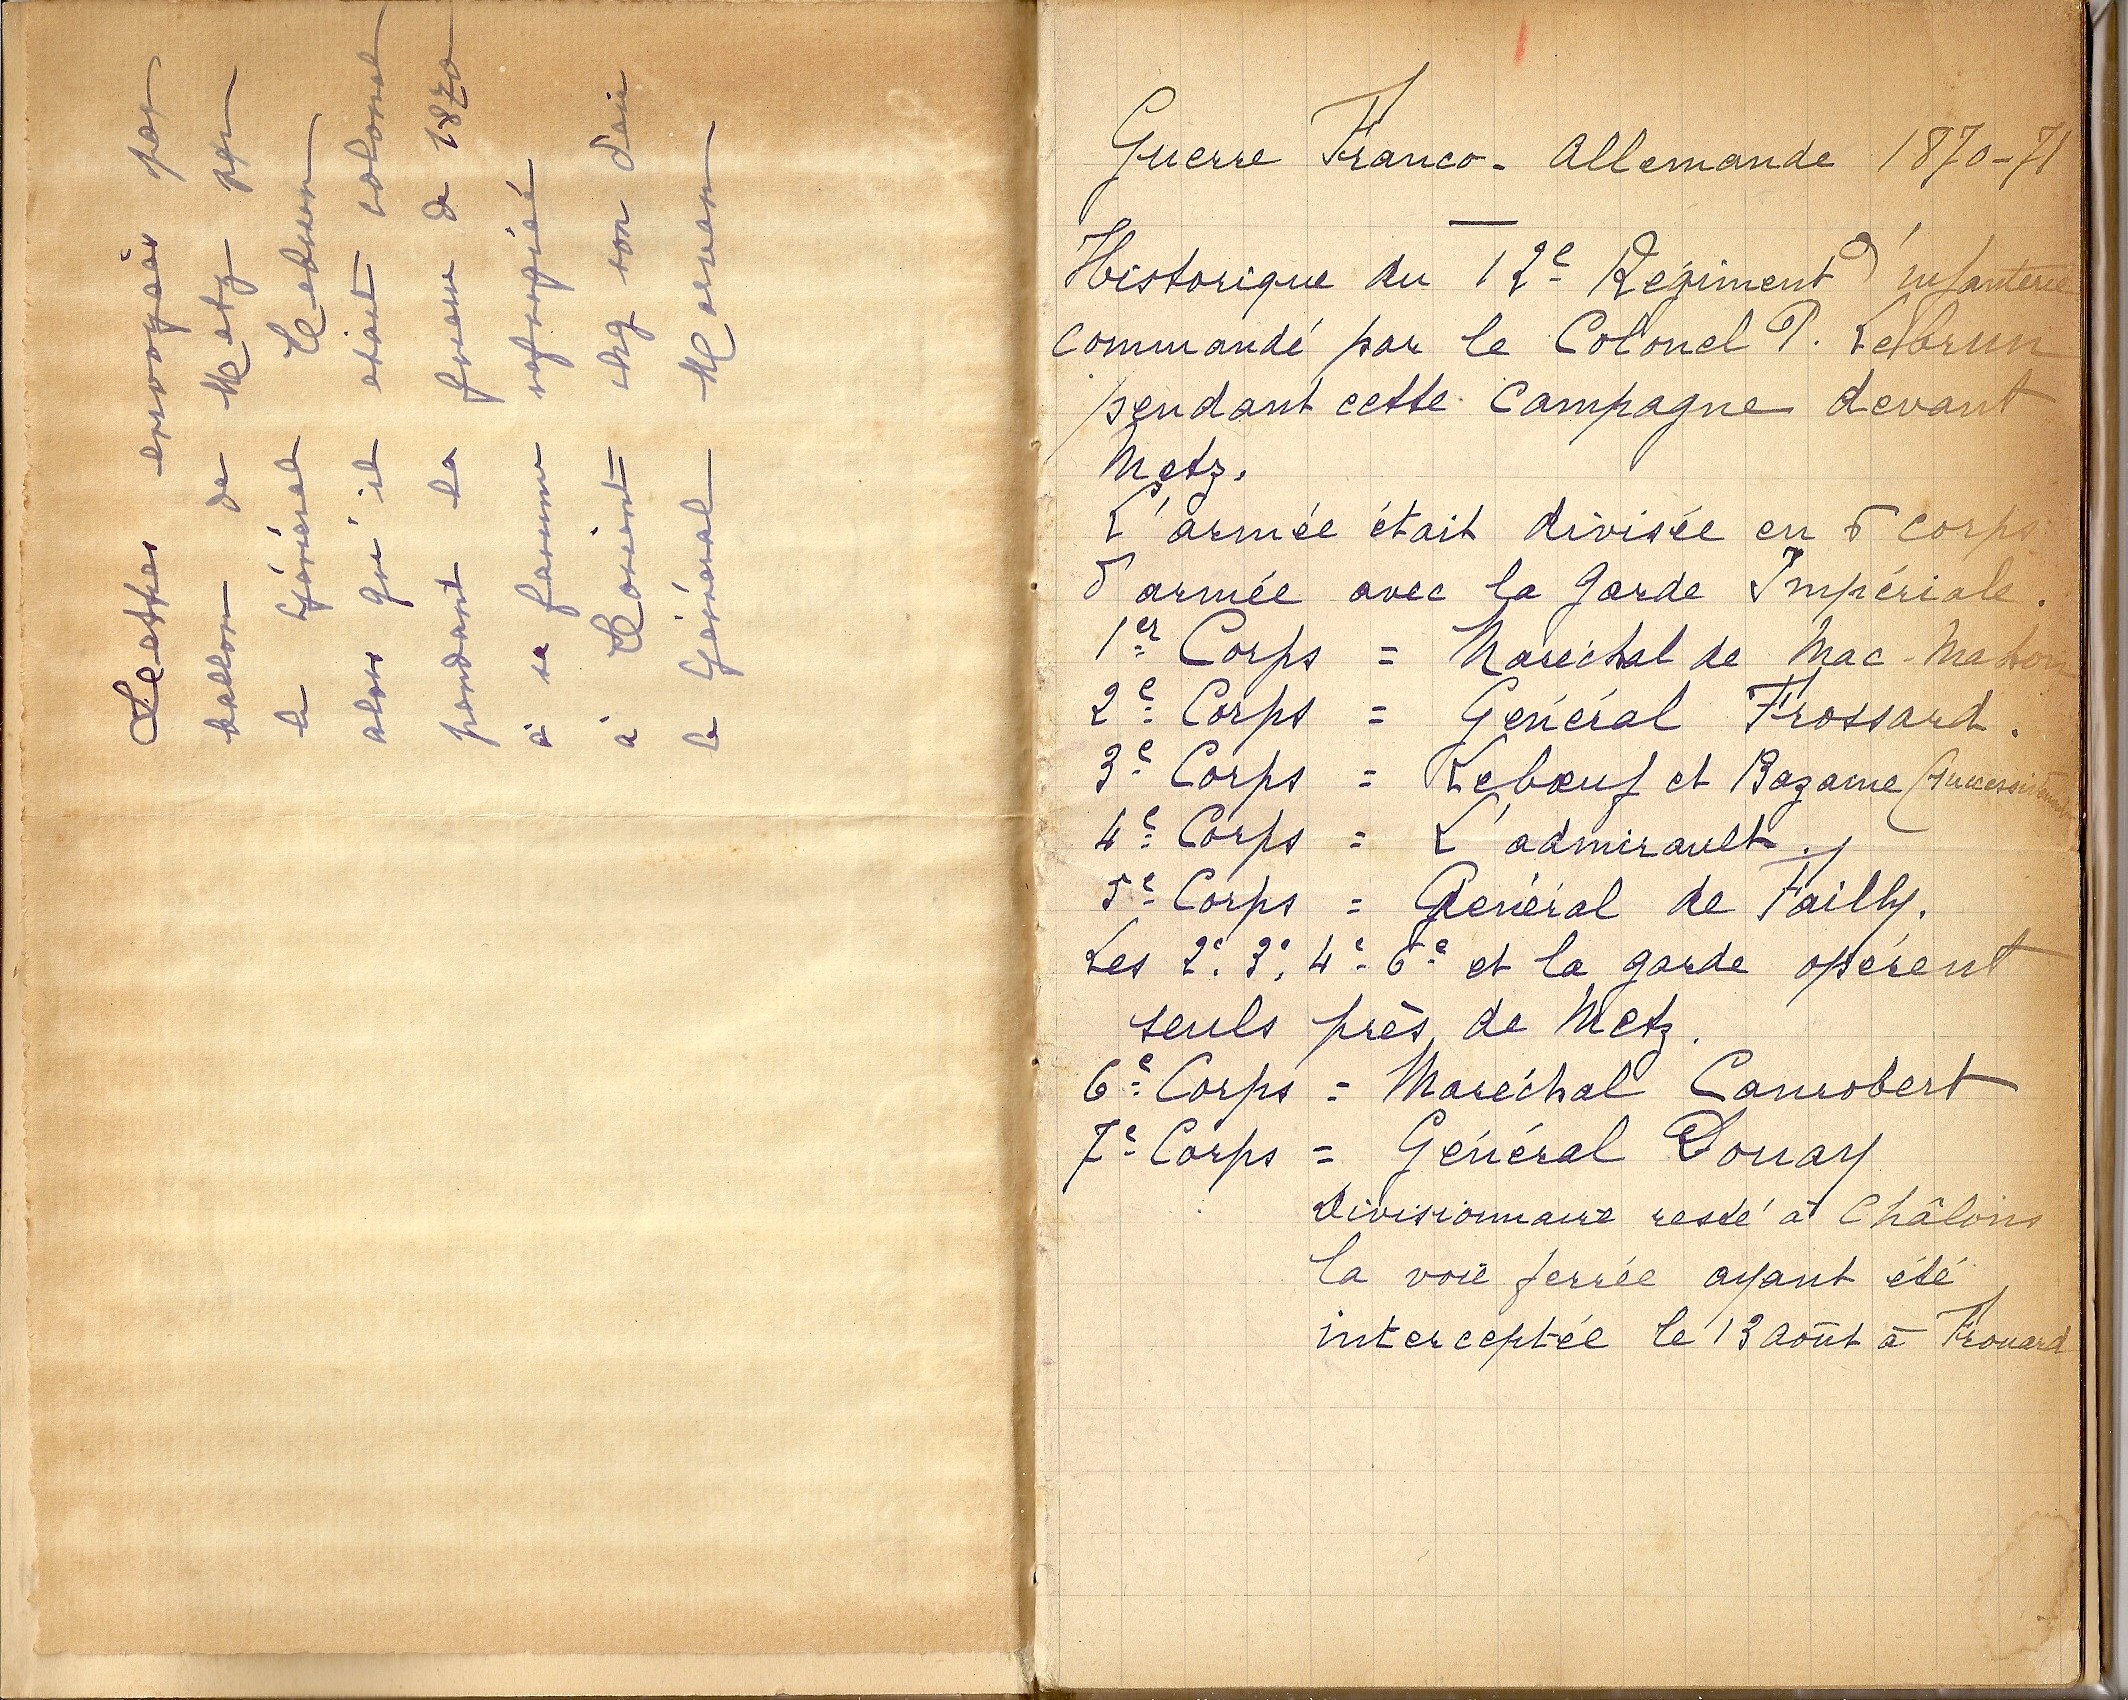 Lettres envoyées par
ballon de Metz par
le Général Lebrun
alors qu'il était colonel
pendant la guerre de 1870
à sa femme réfugiée
à Lorient chez son
le Général
Guerre Franco-Allemande 1870-71
Historique du 12e Régiment d'infanterie
commandé par le Colonel P. Lebrun
pendant cette campagne devant
Metz.
L'armée était divisée en corps
d'armée avec la garde Impériale.
1er Corps = Maréchal de Mac-Mahon
2e Corps = Général Frossard.
3e Corps = Lebœuf et Bazaine (successivement
4e Corps = L'admirault.
5e Corps = Général de Failly.
Les 2e. 3e. 4e. 6e et la garde opérent
seuls près de Metz.
6e Corps = Maréchal Canrobert
7e Corps = Général Douay
divisionnaire resté à Châlons
la voie ferrée ayant été
interceptée le 13 août à Frouard